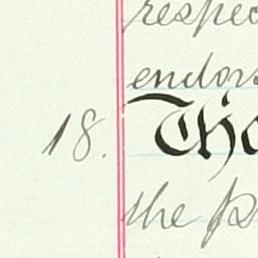 respec
endors
18. Tha
the p